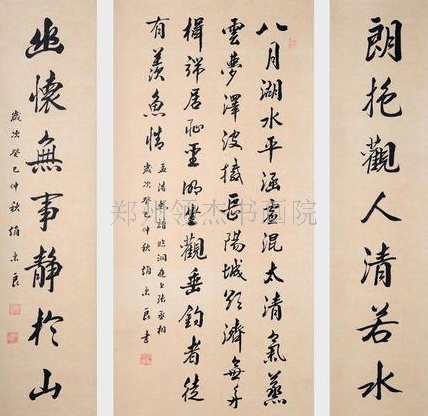 朗抱觀人清若水
八月湖水平涵虛混太清氣蒸
雲夢澤波撼岳陽城欲濟無舟
楫端居恥聖明坐觀垂釣者徒
有羨魚情
孟浩然詩臨洞庭上張丞相
歲次癸巳仲秋 書
幽懷無事靜於山
歲次癸巳仲秋
郑州领杰书画院